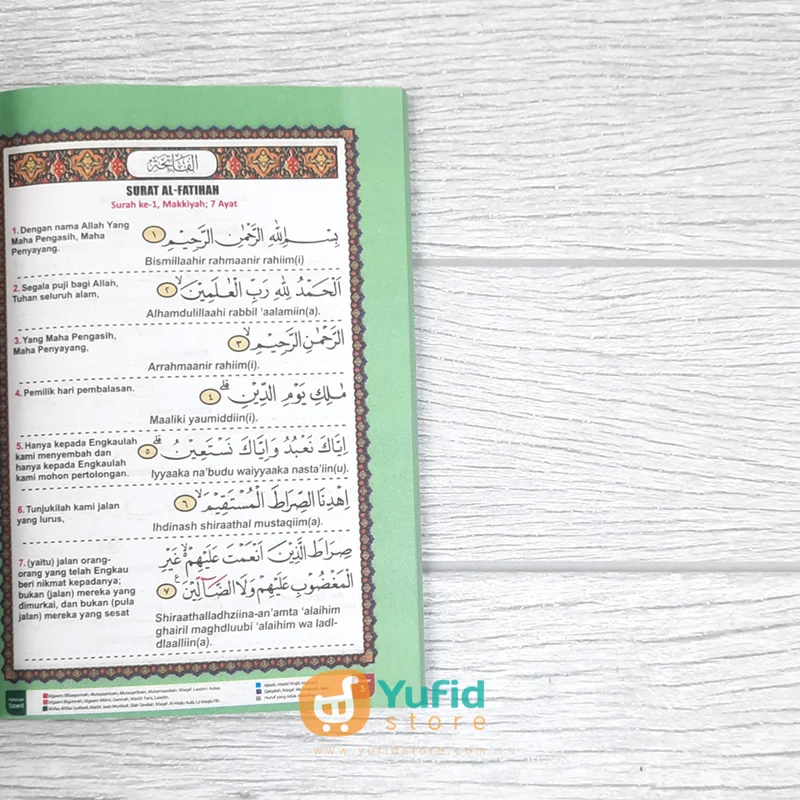 الفاتحة
SURAT AL-FATIHAH
Surah ke-1, Makkiyah; 7 Ayat
1. Dengan nama Allah Yang
Maha Pengasih, Maha
Penyayang.
بِسْمِ اللّٰهِ الرَّحْمٰنِ الرَّحِيْمِ ١
Bismillaahir rahmaanir rahiim(i)
2. Segala puji bagi Allah,
Tuhan seluruh alam,
اَلْحَمْدُ لِلّٰهِ رَبِّ الْعٰلَمِيْنَۙ ٢
Alhamdulillaahi rabbil ‘aalamiin(a).
3. Yang Maha Pengasih,
Maha Penyayang,
الرَّحْمٰنِ الرَّحِيْمِۙ ٣
Arrahmaanir rahiim(i).
4. Pemilik hari pembalasan.
مٰلِكِ يَوْمِ الدِّيْنِۗ ٤
Maaliki yaumiddiin(i).
5. Hanya kepada Engkaulah
kami menyembah dan
hanya kepada Engkaulah
kami mohon pertolongan.
اِيَّاكَ نَعْبُدُ وَاِيَّاكَ نَسْتَعِيْنُۗ ٥
Iyyaaka na’budu waiyyaaka nasta’iin(u).
6. Tunjukilah kami jalan
yang lurus,
اِهْدِنَا الصِّرَاطَ الْمُسْتَقِيْمَۙ ٦
Ihdinash shiraathal mustaqiim(a).
7. (yaitu) jalan orang-
orang yang telah Engkau
beri nikmat kepadanya;
bukan (jalan) mereka yang
dimurkai, dan bukan (pula
jalan) mereka yang sesat
صِرَاطَ الَّذِيْنَ اَنْعَمْتَ عَلَيْهِمْۙ غَيْرِ
الْمَغْضُوْبِ عَلَيْهِمْ وَلَا الضَّاۤلِّيْنَ ࣖ ٧
Shiraathalladhziina-an’amta ‘alaihim
ghairil maghdluubi ‘alaihim wa ladl-
dlaalliin(a).
Yufid
store
www.yufidstore.com